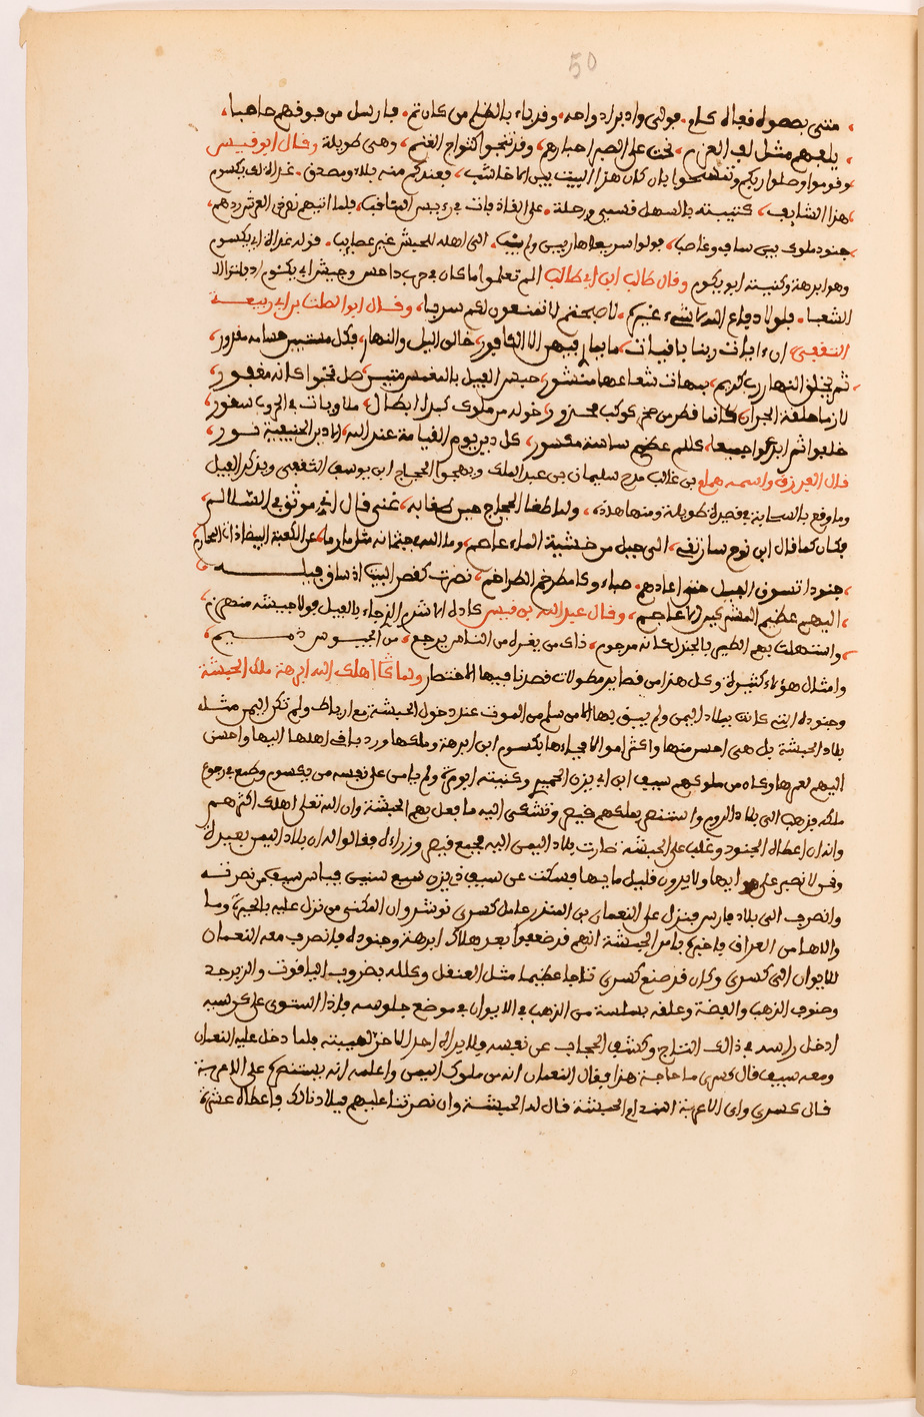 50
متى بصصوله فماله كلم، فولى وادبر ادراجه، وقد باء بالظلم من كان ثم، فارسل من فوقهم حاصبا،
يلفهم مثل لف القزم، تحث على الصبر احبارهم، وقد ثجوا كثواج الغنم، وهي طويلة وقال ابو قيس
وقوموا وصلوا ربكم وتمسحوا بان كان هذا البيت بين الاخاشب، فعندكم منه بلاء ومصدق، غداة ابي يكسوم
هذا الشايب، كتيبته بالسهل تمسي ورجله، على القاذفات في رءيس المناقب، فلما اتيهم نصر ذي العرش ردهم،
جنود ملوك بين ساف وحاصب، فولوا سريعا هاربين ولم يئب، الى اهله للحبش غير عصايب، قوله غداة ابي يكسوم
وهو ابرهة وكنيته ابو يكسوم وقال طالب ابن ابي طالب الم تعلموا ما كان في حرب داحس وجيش ابي يكسوم اذ ملئوا لنا
الشعبا، فلولا دفاع الله لا شيء غيره، لاصبحتم لا تمنعون لكم سربا، وقال ابو الصلت ابن ابي ربيعة
الثقفي، ان ءايات ربنا باقيات، ما يمار فيهن الا الكافور، خالق اليل والنهار، فكل مستبين حسابه مقدور،
ثم يجلو النهار رب كريم، بمهات شعاعها منشور، حبس الفيل بالمغمس حتى، ظل يحبوا كانه معقور،
لازما حلقة الجران كانما قطر من صخر كوكب محدور، حوله من ملوك كندة ابطال، ملاويات في الحروب صقور،
خلفوه ثم ابذعروا جميعا، كلهم عظم ساقه مكسور، كل دين يوم القيامة عند الله، الا دين الحنيفية بور،
قال الفرزق واسمه همام بن غالب مدح سليمان بن عبد الملك ويهجوا الحجاج ابن يوسف الثقفي ويذكر الفيل
وما وقع بالساية في قصيدة طويلة ومنها هذه، ولما طغا الحجاج حين طغا به، غنى قال اني مرتق في السلالم،
فكان كما قال ابن نوح سارتقي، الى جبل من خشية الماء عاصم، رما الله في جثمانه مثل ما رما، عن الكعبة البيضا ذات المحارم،
جنودا تسوق الفيل حتى اعادهم، هباء وكا مطرخم الطراخم، نصرت كنصر البيت اذ ساق فيله
اليهم عظيم المشركين الاعاجم، وقال عبد الله بن قيس كاده الاشرم الذي جاء بالفيل فولا وجيشه منهزم،
واستهلت بهم الطير بالجندل كانه مرجوم، ذاك من يغزه من الناس يرجع، من الجيوس ذميم،
وامثال هؤلاء كثيرة وكل هذا من قصايد مطولات قصدنا فيها الاختصار ولما اهلك الله ابرهة ملك الحبشة
وجنوده التي كانت ببلاد اليمن ولم يبق بها الا من سلم من الموت عند دخول الحبشة مع ارباط ولم تكن اليمن مثله
بلاد الحبشة بل هي احسن منها واكثر اموالا فجاءها يكسوم ابن ابرهة وملكها ورد باقي اهلها اليها واحسن
اليهم لعمرها وكان من ملوكهم سيف ابن ابي يزن الحميري وكنيته ابو مرة ولم يامن على نفسه من يكسوم وطمع في رجوع
ملكه فذهب الى بلاد الروم واستنصر بملكهم قيصر وتشكى اليه ما فعل بهم الحبشة وان الله تعلى اهلك اكثرهم
وانه ان اعطاه الجنود وغلب على الحبشة صارت بلاد اليمن اليه فجمع قيصر وزراءه فقالوا له ان بلاد اليمن بعيدة
ونحن لا نصبر على ايها ولا يدرون قليل ما بها فسكت عن سيف ذي يزن سبع سنين فيئس سيف من نصرته
وانصرف الى بلاد فارس فنزل على النعمان بن المنذر عامل كسرى نوشروان المكنى من نزل عليه بالحيرة وما
والاها من العراق فاخبره بامر الحبشة انهم قد ضعفوا بعد هلاك ابرهة وجنوده فانصرف معه النعمان
للايوان الى كسرى وكان قد صنع كسرى تاجا عظيما مثل القنقل وكلله بضروب الياقوت والزبرجد
وصنوف الذهب والفضة وعلقه بسلسة من الذهب في الايوان في موضع جلوسه فاذا استوى على كرسيه
ادخل راسه في ذالك التاج وكشف الحجاب عن نفسه فلا يراه احد الا خر لهيبته فلما دخل عليه النعمان
ومعه سيف قال كسرى ما حاجة هذا فقال النعمان انه من ملوك اليمن واعلمه انه يستنصره على الاغربة
قال كسرى واي الاغربة السند ام الحبشة قال له الحبشة وان نصرتنا عليهم فبلادنا لك فاعطاه عشرة